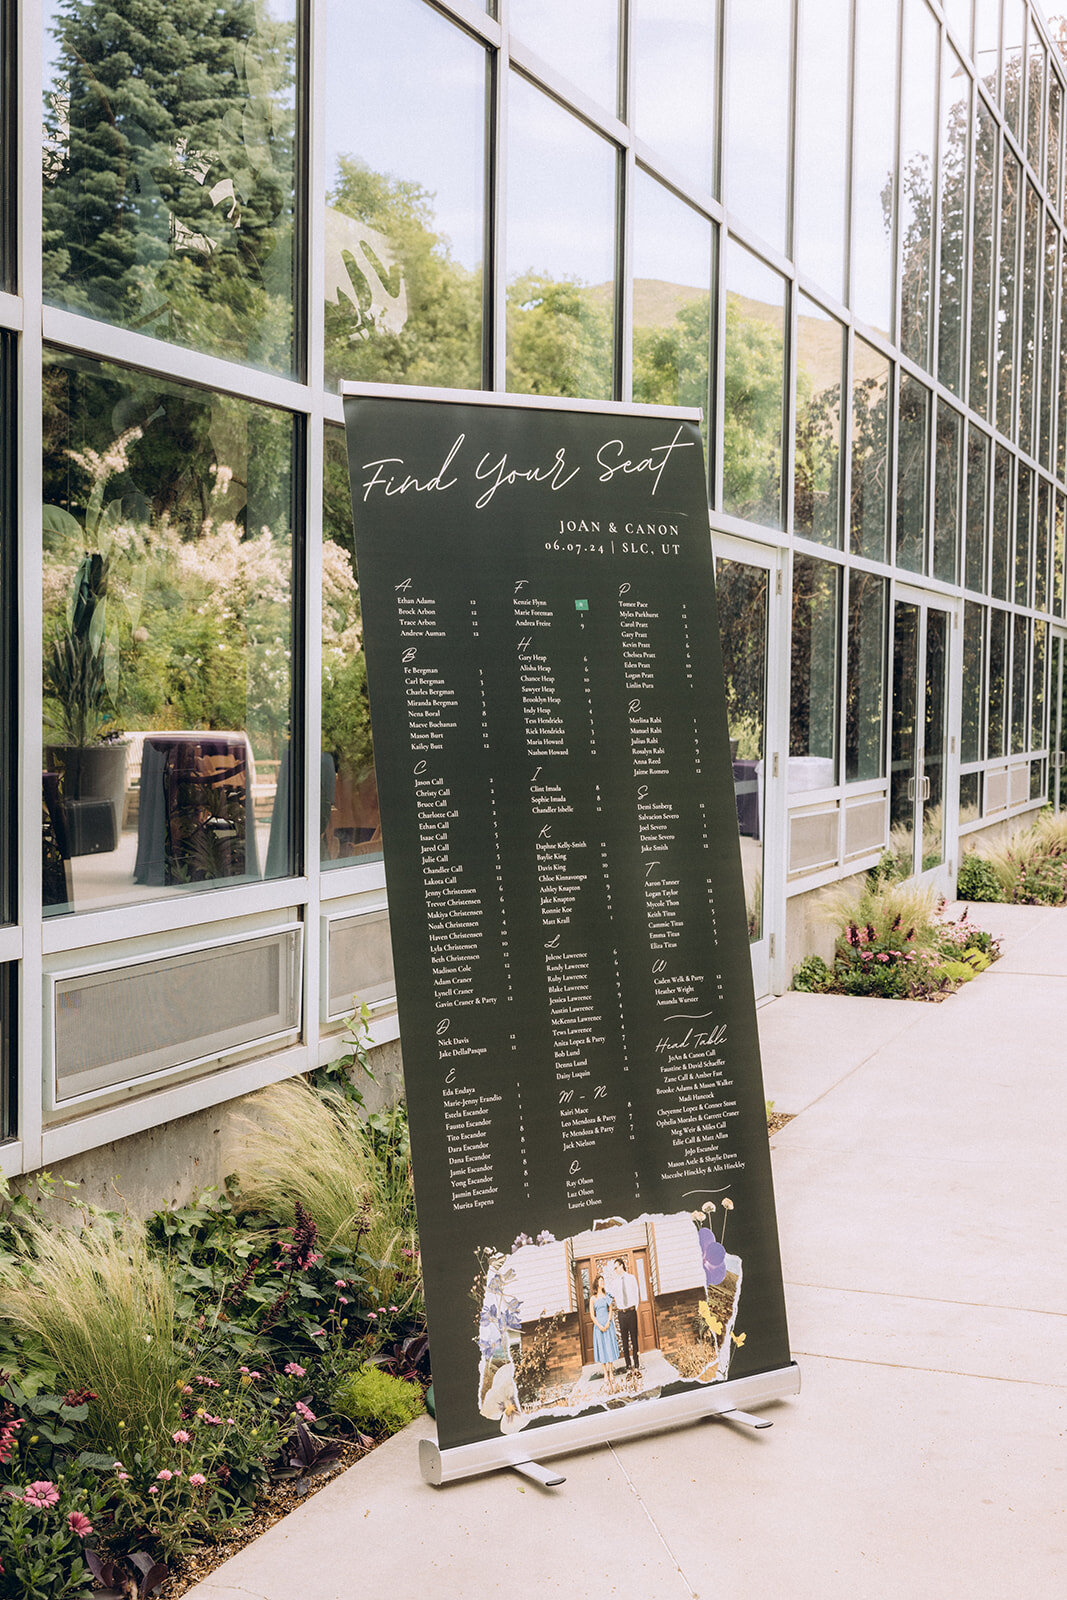 Find Your Seat
JOAN & CANON
06.07.24 | SLC, UT
A
Ethan Adams 12
Brock Arbon 12
Trace Arbon 12
Andrew Auman 12
B
Fe Bergman 3
Carl Bergman 3
Charles Bergman 3
Miranda Bergman 3
Nena Boral 8
Maeve Buchanan 12
Mason Burt 12
Kailey Butt 12
C
Jason Call 2
Christy Call 2
Bruce Call 2
Charlotte Call 2
Ethan Call 5
Isaac Call 5
Jared Call 5
Julie Call 5
Chandler Call 12
Lakota Call 12
Jenny Christensen 6
Trevor Christensen 6
Makiya Christensen 4
Noah Christensen 4
Haven Christensen 10
Lyla Christensen 10
Beth Christensen 12
Madison Cole 12
Adam Craner 2
Lynell Craner 2
Gavin Craner & Party 12
D
Nick Davis 12
Jake DellaPasqua 11
E
Eda Endaya 1
Marie-Jenny Erandio 1
Estela Escandor 1
Fausto Escandor 1
Tito Escandor 8
Dara Escandor 8
Dana Escandor 11
Jamie Escandor 8
Yong Escandor 8
Jasmin Escandor 11
Murita Espena 1
F
Kenzie Flynn
Marie Foreman 1
Andrea Freire 9
H
Gary Heap 6
Alisha Heap 6
Chance Heap 10
Sawyer Heap 10
Brooklyn Heap 4
Indy Heap 4
Tess Hendricks 3
Rick Hendricks 3
Maria Howard 12
Nashon Howard 12
I
Clint Imada 8
Sophie Imada 8
Chandler Isbelle 12
K
Daphne Kelly-Smith 12
Baylie King 10
Davis King 10
Chloe Kinnavongsa 12
Ashley Knapton 9
Jake Knapton 9
Ronnie Koe 11
Matt Krall 1
L
Julene Lawrence 6
Randy Lawrence 6
Ruby Lawrence 4
Blake Lawrence 9
Jessica Lawrence 9
Austin Lawrence 4
McKenna Lawrence 4
Tews Lawrence 4
Anita Lopez & Party 7
Bob Lund 2
Denna Lund 2
Daisy Luquin 12
M - N
Kairi Mace 8
Leo Mendoza & Party 7
Fe Mendoza & Party 7
Jack Nielson 12
O
Ray Olson 3
Luz Olson 3
Laurie Olson 11
P
Tomer Pace 2
Myles Parkhurst 12
Carol Pratt 2
Gary Pratt 2
Kevin Pratt 6
Chelsea Pratt 6
Eden Pratt 10
Logan Pratt 10
Linlin Pura 1
R
Merlina Rabi 1
Manuel Rabi 1
Julius Rabi 9
Rosalyn Rabi 9
Anna Reed 12
Jaime Romero 12
S
Demi Sanberg 12
Salvacion Severo 1
Joel Severo 1
Denise Severo 11
Jake Smith 12
T
Aaron Tanner 12
Logan Taylor 12
Mycole Thon 11
Keith Titus 5
Cammie Titus 5
Emma Titus 5
Eliza Titus 5
W
Caden Welk & Party 12
Heather Wright 12
Amanda Wurster 11
Head Table
JoAn & Canon Call
Faustine & David Schaeffer
Zane Call & Amber Fast
Brooke Adams & Mason Walker
Madi Hancock
Cheyenne Lopez & Conner Stout
Ophelia Morales & Garrett Craner
Meg Weir & Miles Call
Edie Call & Matt Allan
JoJo Escandor
Mason Astle & Shaylie Dawn
Maccabe Hinckley & Alix Hinckley